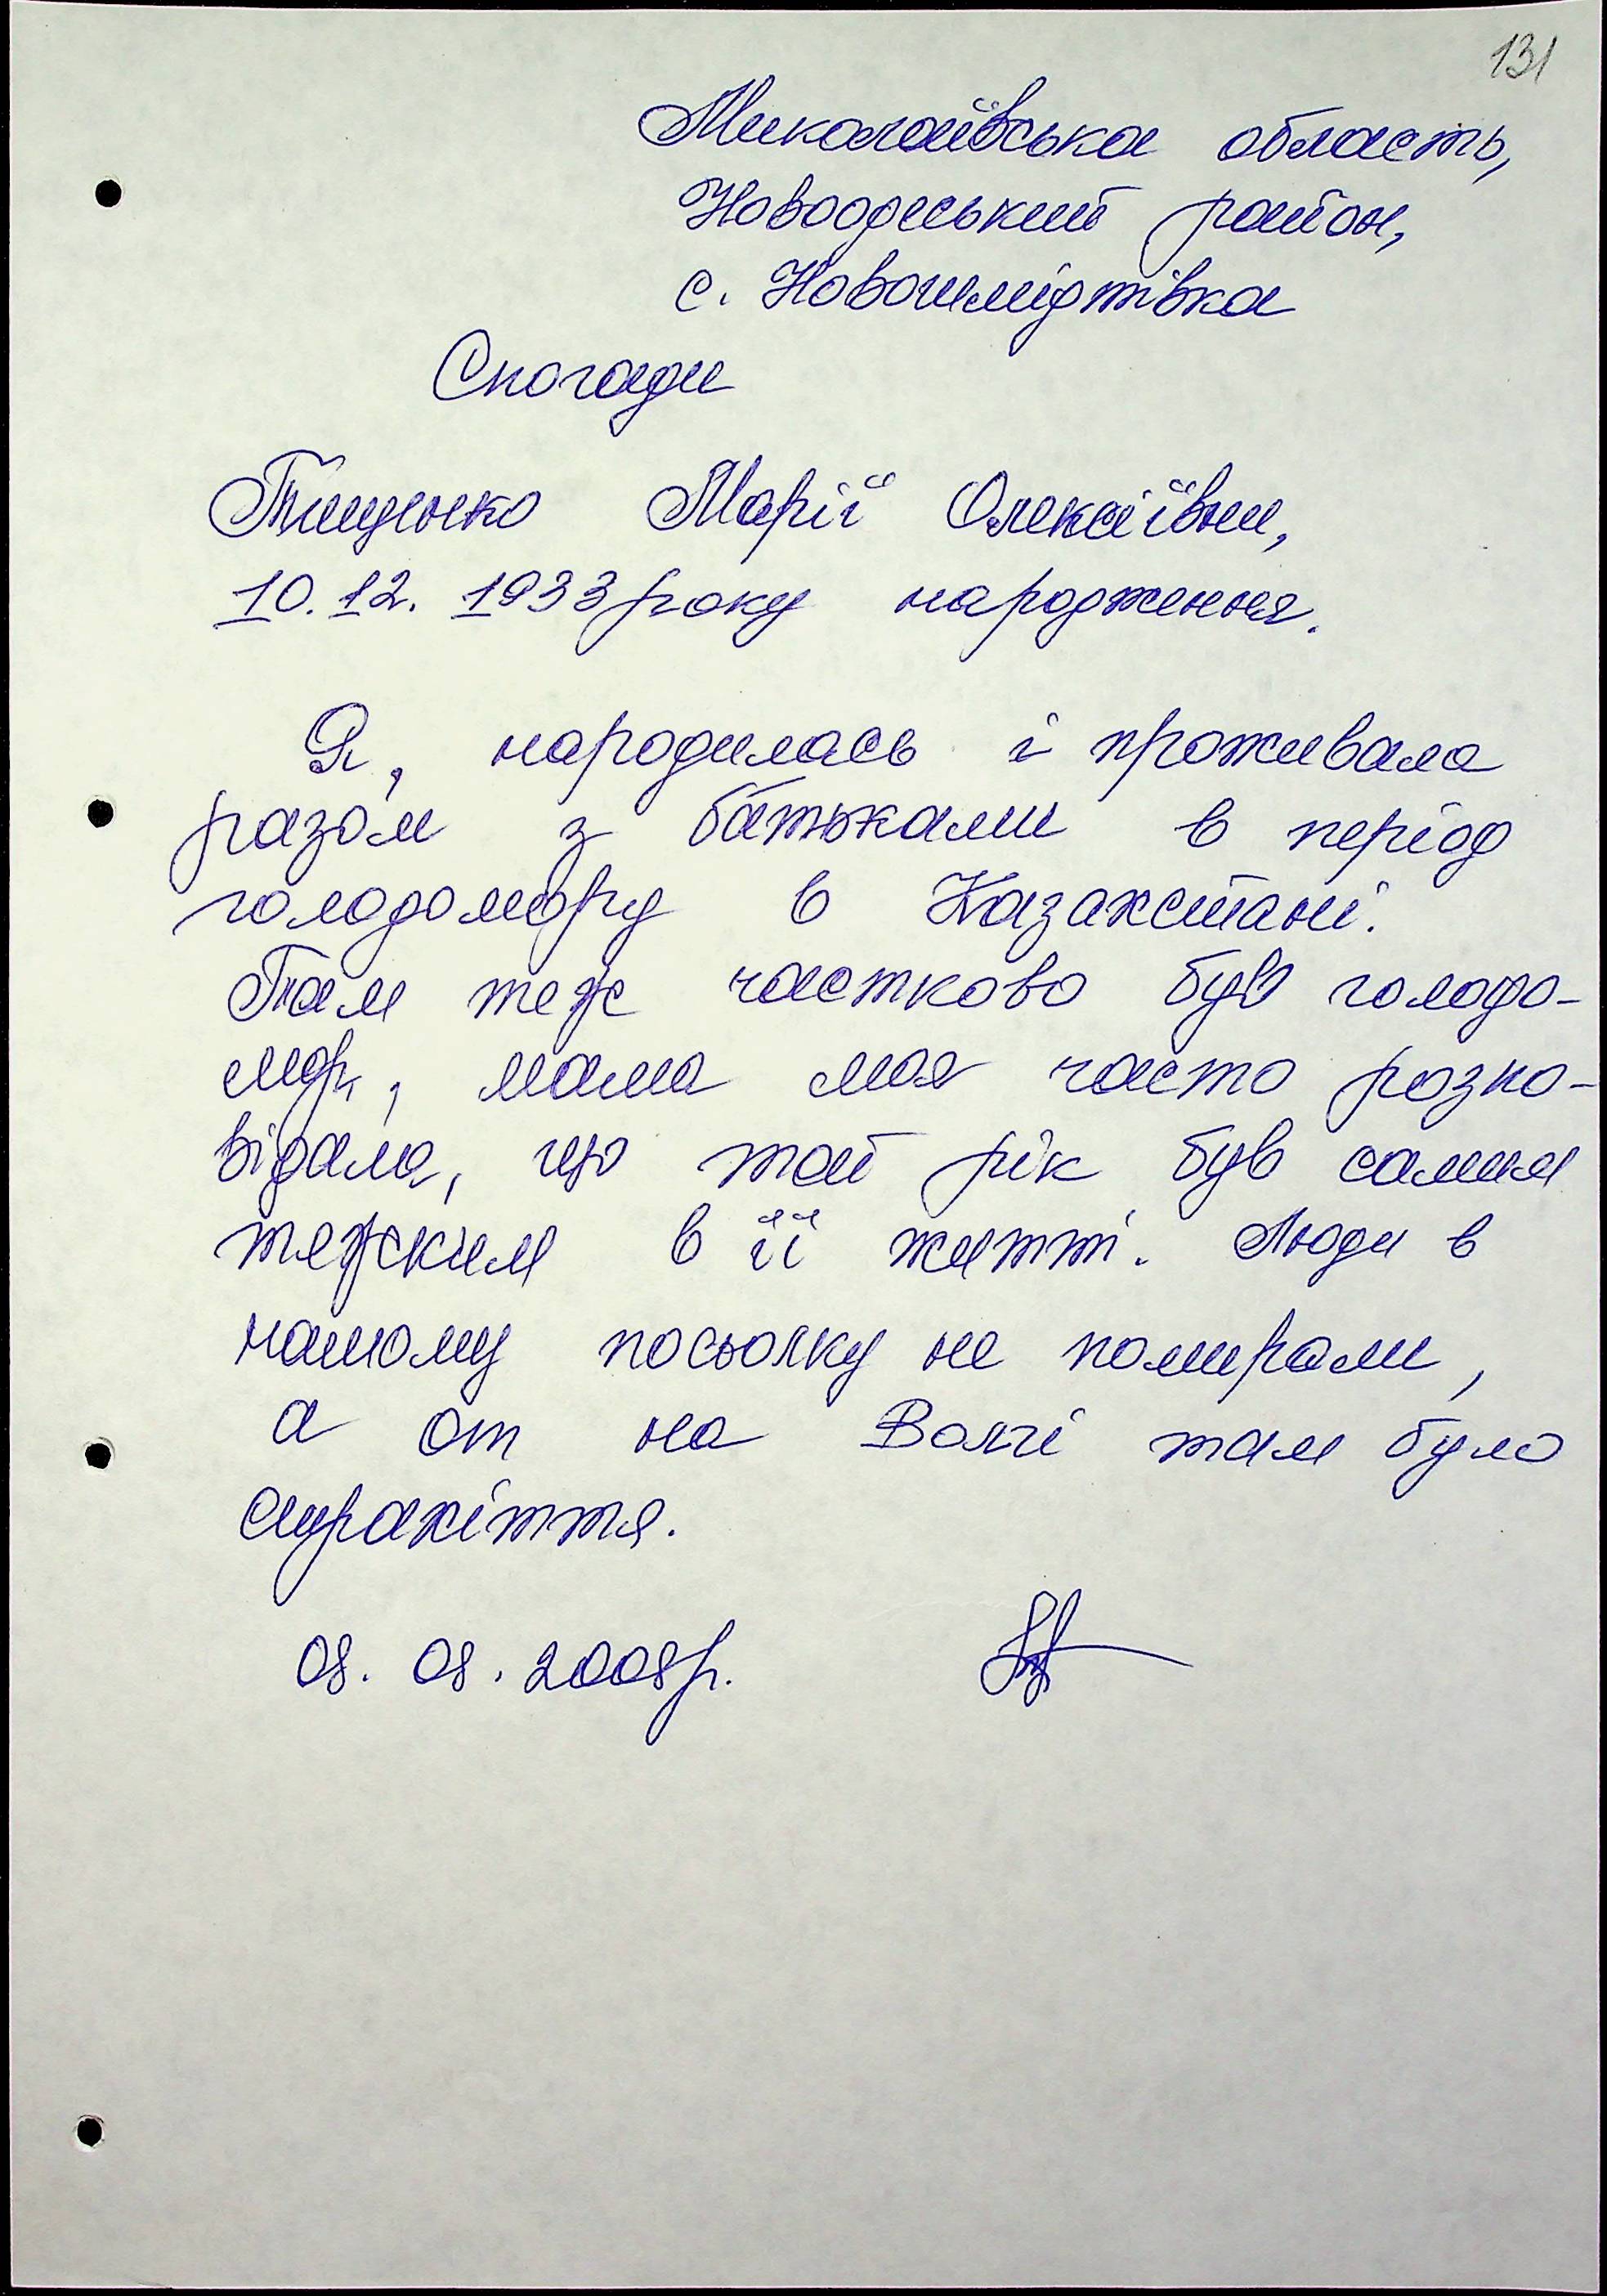 131
Миколаївська область,
Новоодеський район,
с. Новошмідтівка
Спогади
Тищенко Марії Олексіївни,
10.12.1933 року народження.
Я, народилась і проживала
разом з батьками в період
голодомору в Казахстані.
Там теж частково був голодо-
мор, мама моя часто розпо-
відала, що той рік був самим
тяжским в її житті. Люди в
нашому посьолку не помирали,
а от на Волзі там було
страхіття.
08. 08. 2008р.